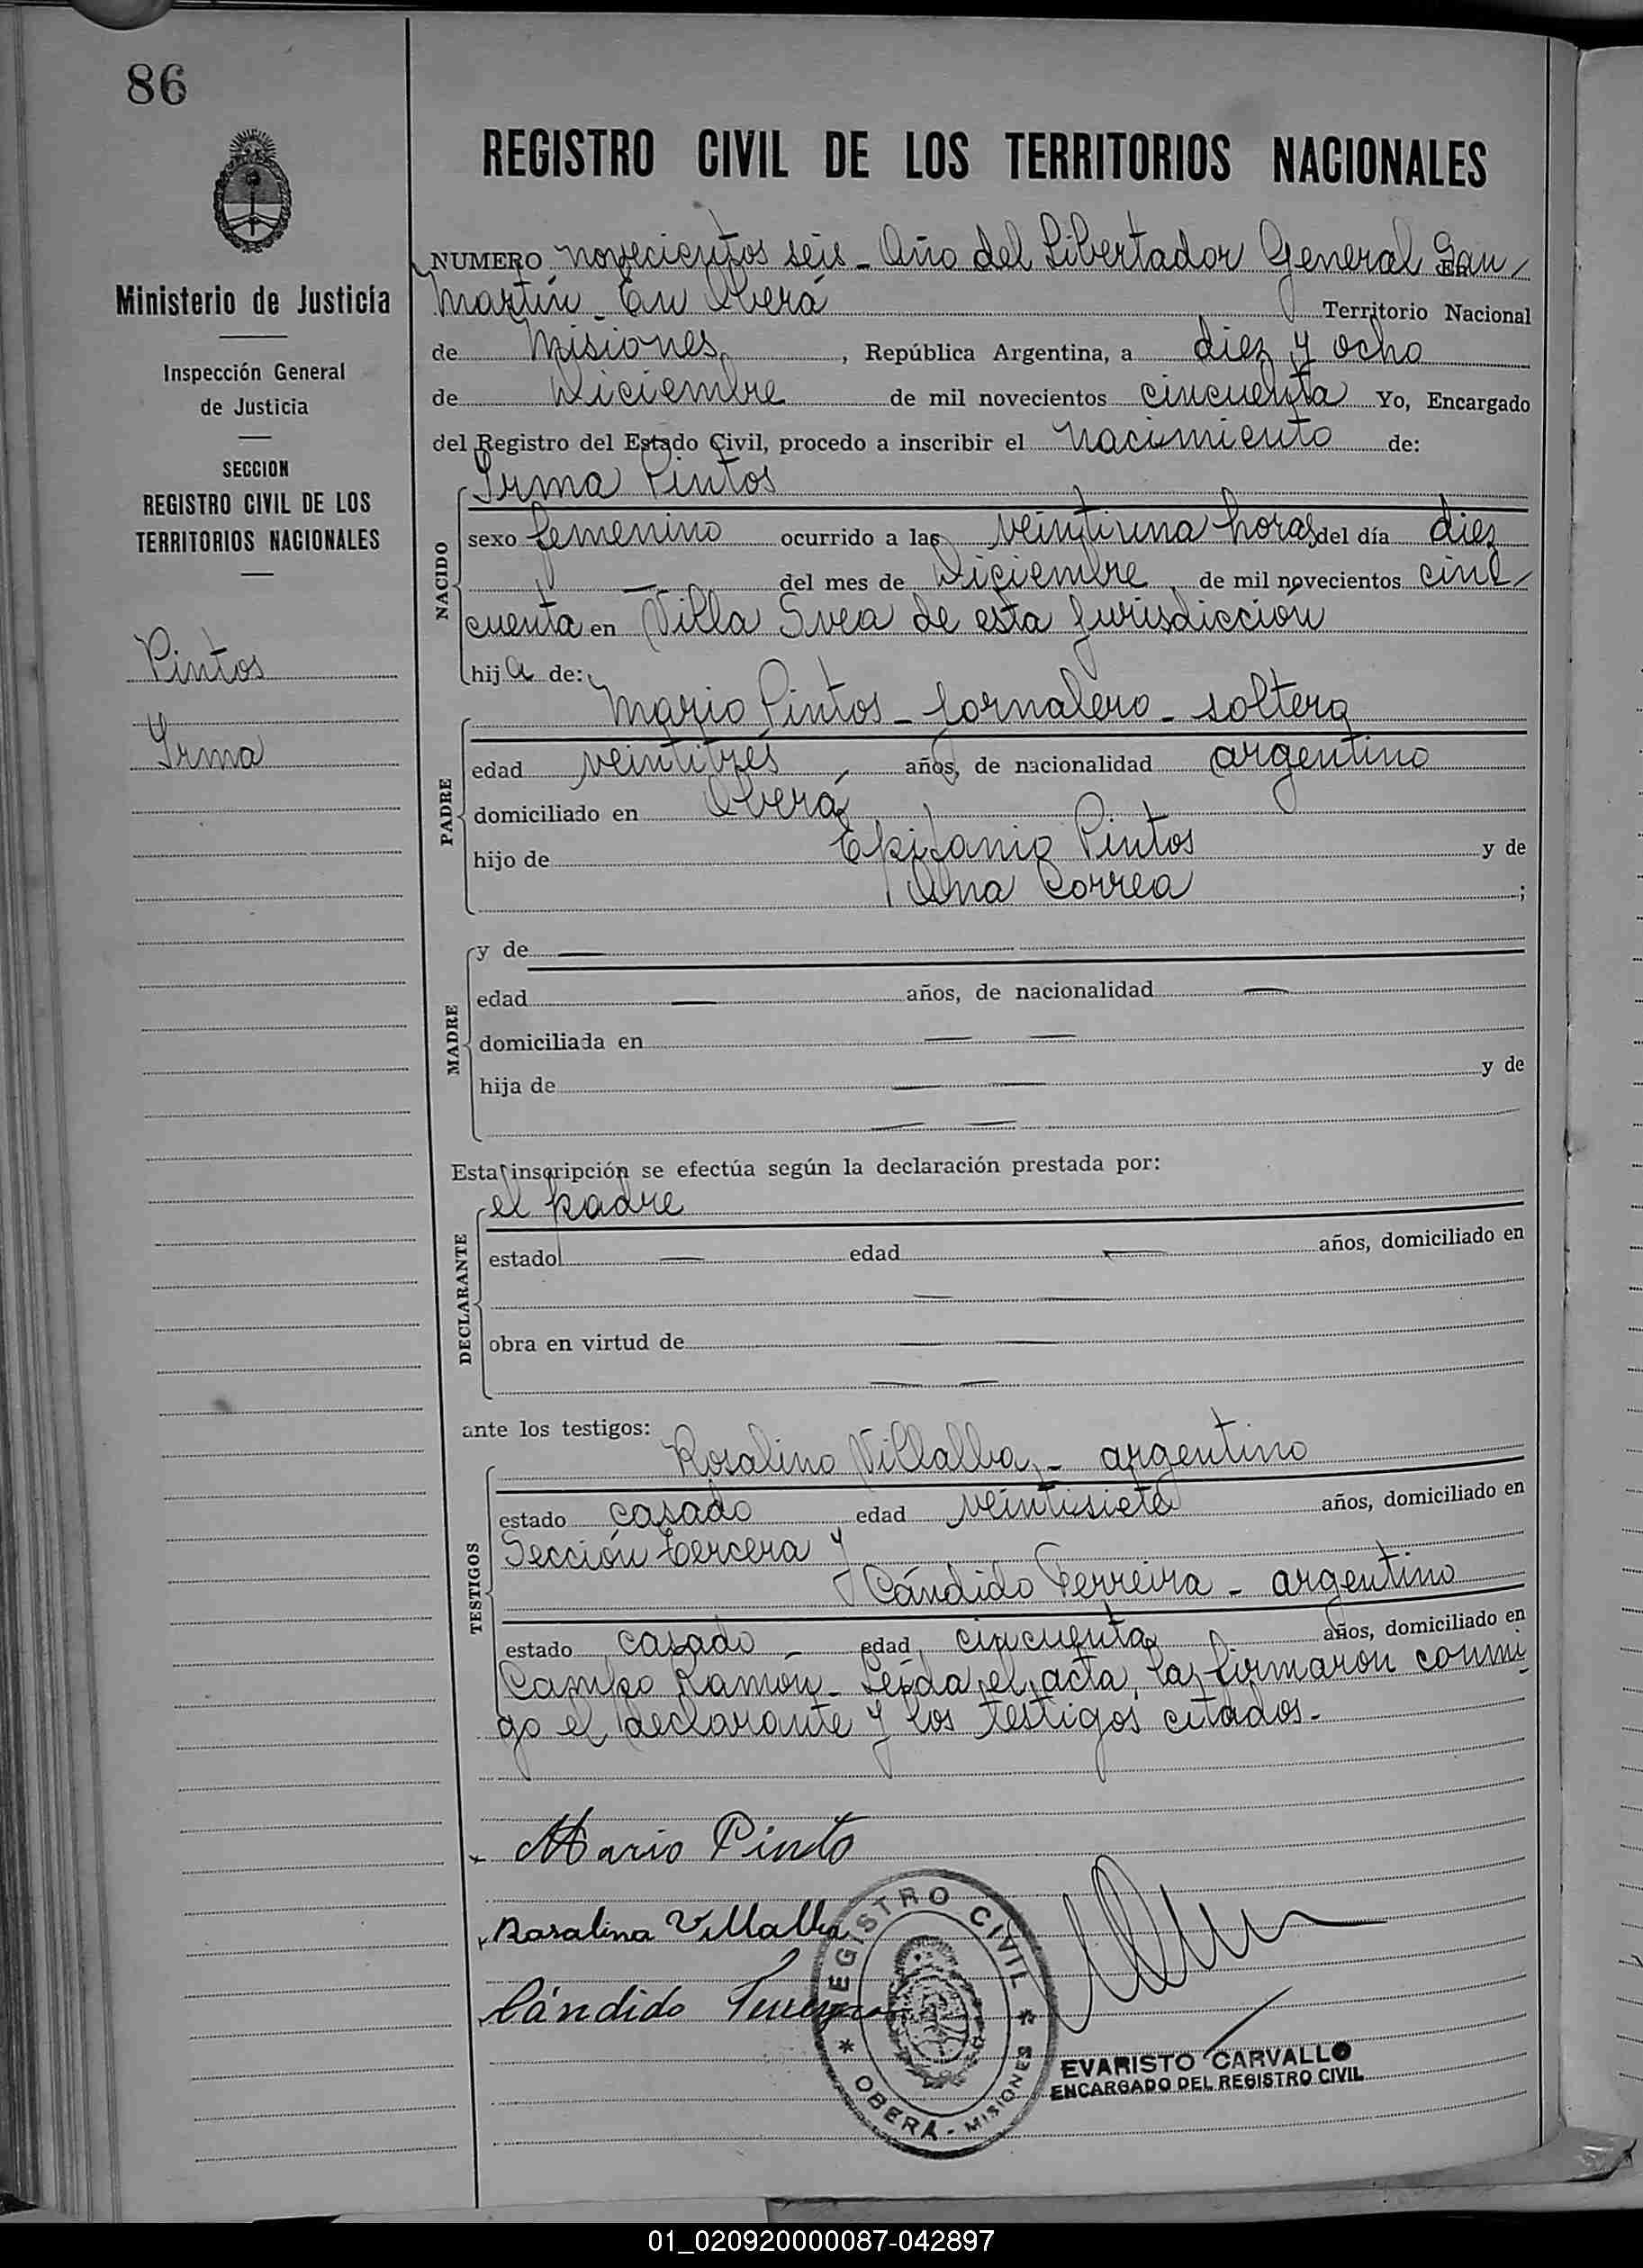 86
REGISTRO CIVIL DE LOS TERRITORIOS NACIONALES
Ministerio de Justicia
Inspección General
de Justicia
SECCION
REGISTRO CIVIL DE LOS
TERRITORIOS NACIONALES
Pintos
Irma
NUMERO novecientos seis - Año del Libertador General San
Martín - En Oberá Territorio Nacional
de Misiones, República Argentina, a diez y ocho
de Diciembre de mil novecientos cincuenta Yo, Encargado
del Registro del Estado Civil, procedo a inscribir el nacimiento de:
NACIDO
Irma Pintos
sexo femenino ocurrido a las veintiuna horas del día diez
— del mes de Diciembre de mil novecientos cinc-
cuenta en Villa Svea de esta jurisdicción
hija de:
PADRE
Mario Pintos - jornalero - soltero
edad veintitrés años, de nacionalidad argentino
domiciliado en Oberá
hijo de Epifanio Pintos y de
Ana Correa ;
MADRE
y de —
edad — años, de nacionalidad —
domiciliada en — —
hija de — — y de
— —
Esta inscripción se efectúa según la declaración prestada por:
DECLARANTE
el padre
estado — edad — años, domiciliado en
— —
obra en virtud de — —
— —
ante los testigos:
TESTIGOS
Rosalino Villalba - argentino
estado casado edad veintisiete años, domiciliado en
Sección tercera y
Cándido Ferreira - argentino
estado casado - edad cincuenta años, domiciliado en
Campo Ramón - Leída el acta, la firmaron conmi
go el declarante y los testigos citados.-
Mario Pinto
Rosalino Villalba
Cándido Ferreira
REGISTRO CIVIL
* OBERÁ - MISIONES *
EVARISTO CARVALLO
ENCARGADO DEL REGISTRO CIVIL
01_020920000087-042897